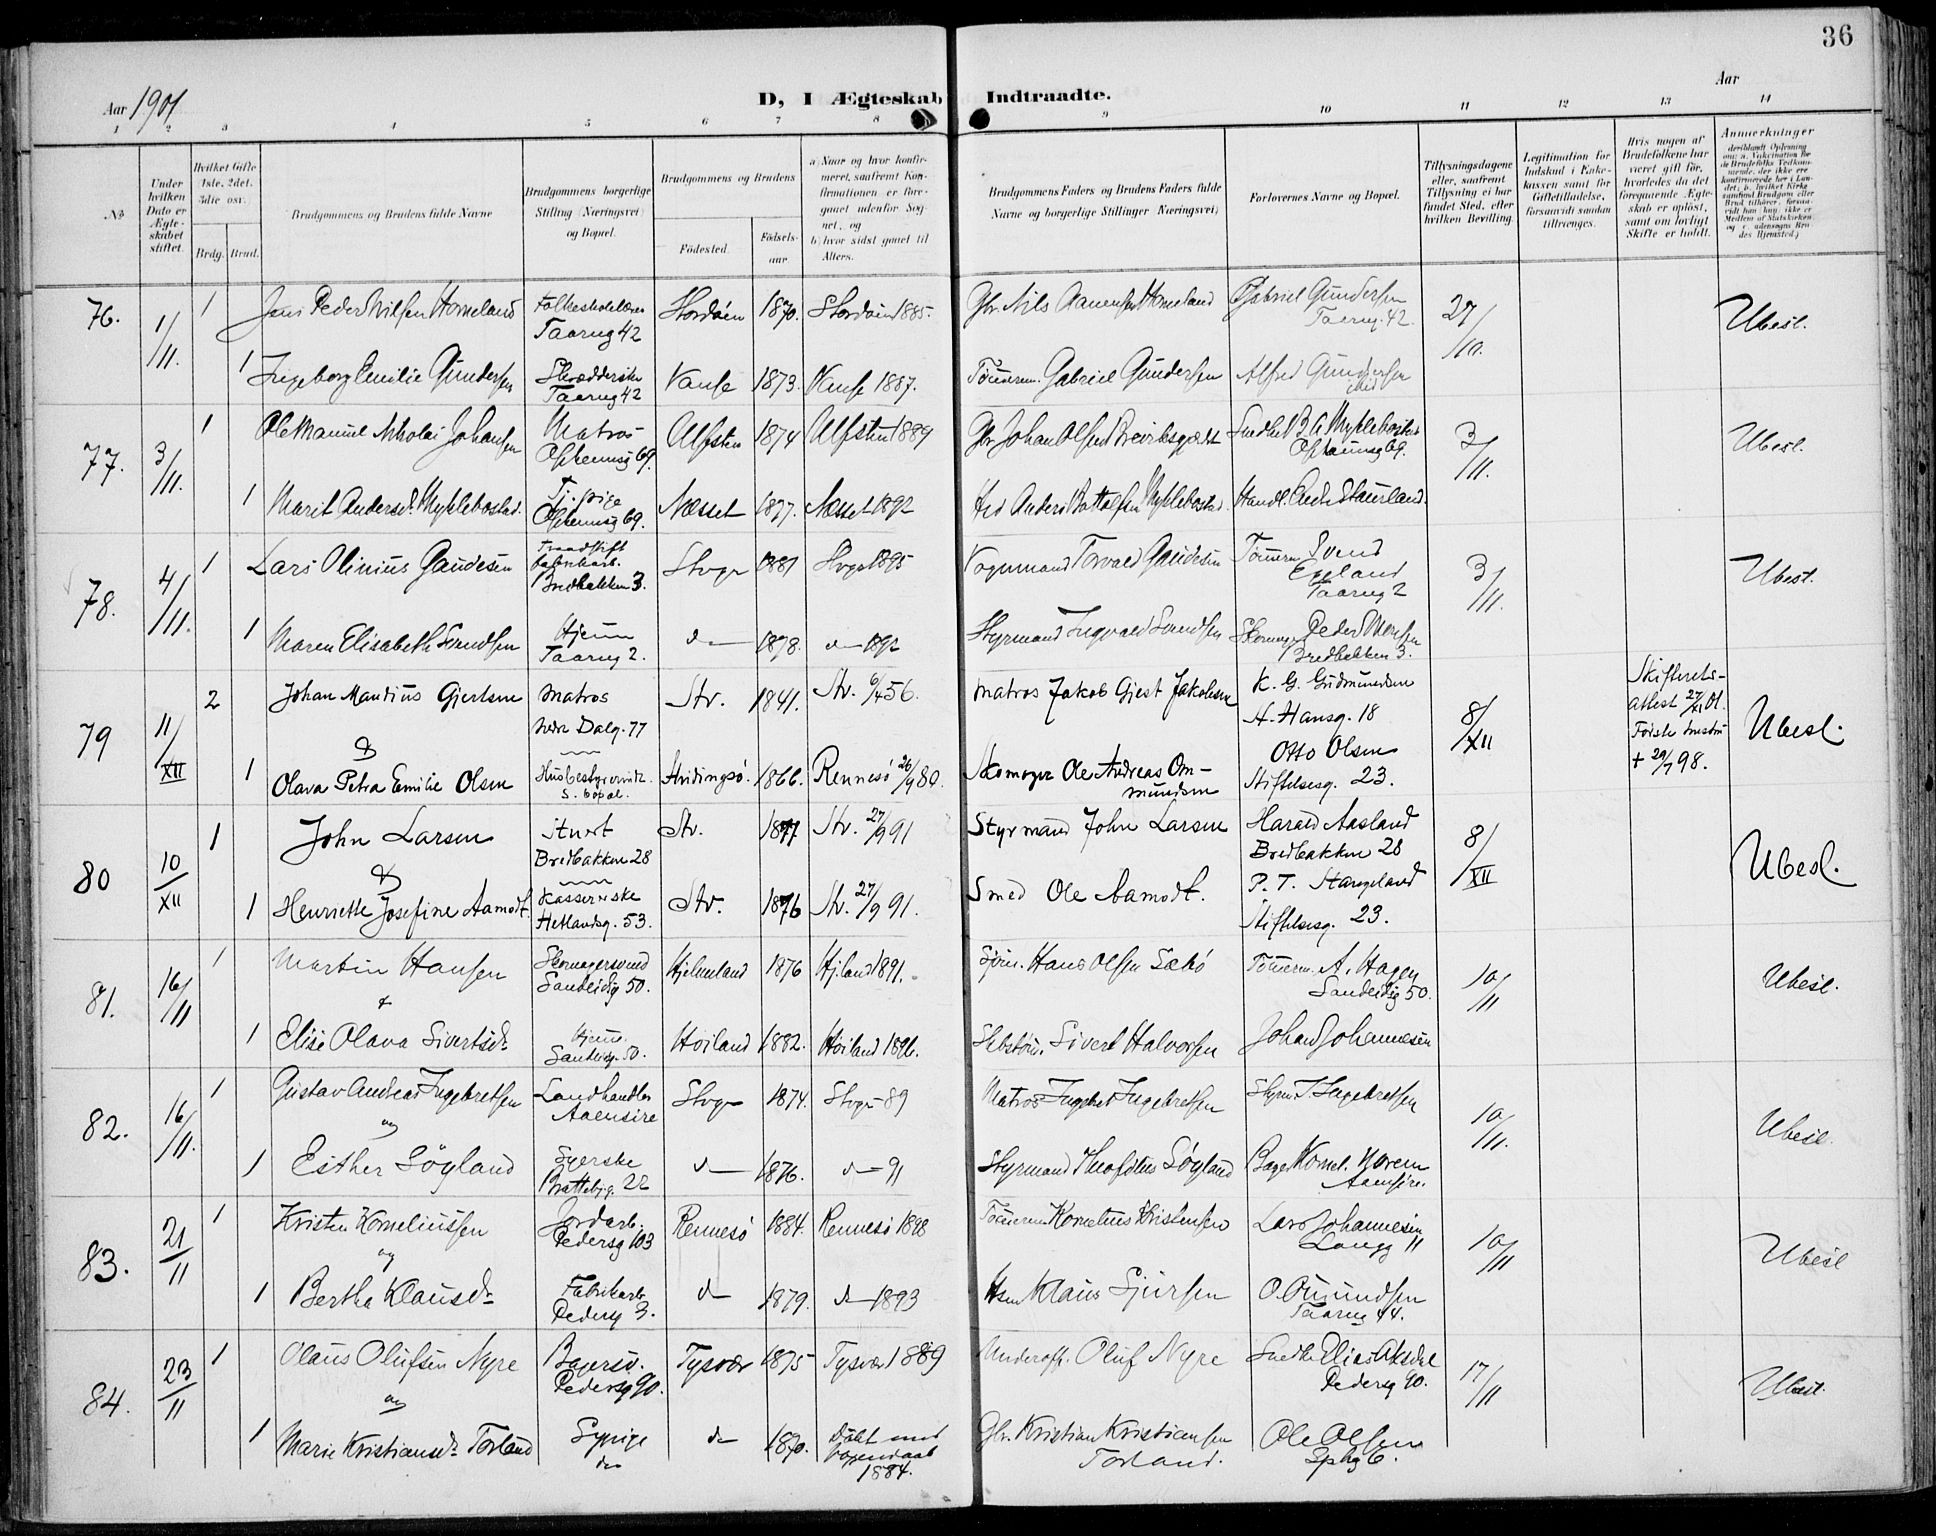 36
Aar 1901
D, I Ægteskab Indtraadte.
Aar
1 2 3 4 5 6 7 8 9 10 11 12 13 14
No
Under hvilken Dato er Ægteskabet stiftet.
Hvilket Gifte 1ste, 2det, 3die osv.
Brdg. Brud.
Brudgommens og Brudens fulde Navne
Brudgommens borgerlige Stilling (Næringsvei) og Bopæl.
Brudgommens og Brudens
Fødested.
Fødsels-aar
a) Naar og hvor konfirmeret, saafremt Konfirmationen er foregaaet udenfor Sognet, og
b) hvor sidst gaaet til Alters.
Brudgommens Faders og Brudens Faders fulde Navne og borgerlige Stillinger (Næringsvei)
Forlovernes Navne og Bopæl.
Tillysningsdagene eller, saafremt Tillysning ei har fundet Sted, efter hvilken Bevilling.
Legitimation for Indskud i Enkekassen samt for Giftetilladelse, forsaavidt saadan tiltrænges.
Hvis nogen af Brudefolkene har været gift før, hvorledes da det foregaaende Ægteskab er opløst, samt om lovligt Skifte er holdt.
Anmerkninger
76. 1/11. 1 Jens Peder Nilsen Homeland Folkeskolelærer Taarng 42 Stordøen 1870. Stordøen 1885. Gbr. Nils Aanensen Homeland Gabriel Gundersen Taarng. 42 27/10. Ubesl.
1 Ingeborg Emilie Gundersen Skrædderske Taarng 42 Vanse 1873. Vanse 1887. Tømerm. Gabriel Gundersen Alfred Gundersen ibid
77. 3/11. 1 Ole Manuel Nikolai Johansen Matros 69. Ulfsten 1874 Ulfsten 1889 Gbr Johan Olsen Snedker Myklebostad 69. 3/11. Ubesl.
1 Marit Andersd. Myklebostad Tj.pige 69. Næsset 1877. Næsset 1892 Anders Myklebostad Handl.
78. 4/11. 1 Lars Olinius Gaudesen Fabrikarb. Bredbakken 3. Stvgr 1881 Stvgr 1895 Vognmand Torvald Gaudesen Tømerm Svend Egeland Taarng 2 3/11. Ubesl.
1 Maren Elisabeth Svendsen Hjem Taarng 2. do 1878. do 1892 Styrmand Ingvald Svendsen Skomager Peder Monsen Bredbakken 3.
79 11/XII 2 Johan Mandius Gjertsen Matros Nedre Dalg. 77 Stv. 1841. Stv. 6/4 56. Matros Jakob Gjest Jakobsen K. G. Gudmundsen A. Hansg. 18 8/XII Skifterets-attest 27/XI 01. Første hustru + 29/7 98. Ubesl.
&
1 Olava Petra Emilie Olsen Husbestyrerinde s. bopæl. Hvidingsø. 1866. Rennesø 26/9 80. Skomager Ole Andreas Ommundsen Otto Olsen Stiftelsesg. 23.
80 10/XII 1 John Larsen Stuert Bredbakken 28 Stv. 1877 Stv. 27/9 91 Styrmand John Larsen Harald Aasland Bredbakken 28 8/XII Ubesl.
&
1 Henriette Josefine Aamodt. Kassererske Hetlandsg. 53. Stv. 1876 Stv. 27/9 91. Smed Ole Aamodt. P. T. Stangeland Stiftelsesg. 23.
81. 16/11 1 Martin Hansen Skomagersvend Sandeidg 50. Hjelmeland 1876 Hj.land 1891. Hans Olsen Sæbø Tømerm. A. Hagen Sandeidg 50. 10/11 Ubesl.
&
1 Elise Olava Sivertsd. Hjem. Sandeidg. 50. Høiland 1882. Høiland 1896. Sivert Halvorsen Johan Johannesen
82. 16/11. 1 Gustav Andreas Ingebretsen Landhandler Aaensire Stvgr 1874. Stvgr 89 Matros Ingebret Ingebretsen Styrm I. Ingebretsen 10/11. Ubesl.
og
1 Esther Søyland Syerske Brattebjg. 22 do 1876. do 91 Styrmand Søyland Bager Kornel. Norem Aaensire.
83. 21/11 1 Kristen Korneliussen Jordarb. Pedersg 103 Rennesø 1884. Rennesø 1898 Tømerm Kornelius Kristensen Lars Johannesen Langg 11 10/11 Ubesl
og
1 Bertha Klausd. Fabrikarb. Pedersg 3. do 1879. do 1893 Klaus Sjursen O. Omundsen Taarng 44.
84. 23/11 1 Olaus Olufsen Nyre Bagersv. Pedersg 90. Tysvær 1875 Tysvær 1889 Underoff. Oluf Nyre Snedker Elias Aksdal Pedersg 90. 17/11 Ubesl.
og
1 Marie Kristiansd. Torland Sypige do do 1870. Døbt med 1884. Gbr. Kristian Kristiansen Torland. Ole Olsen 6.